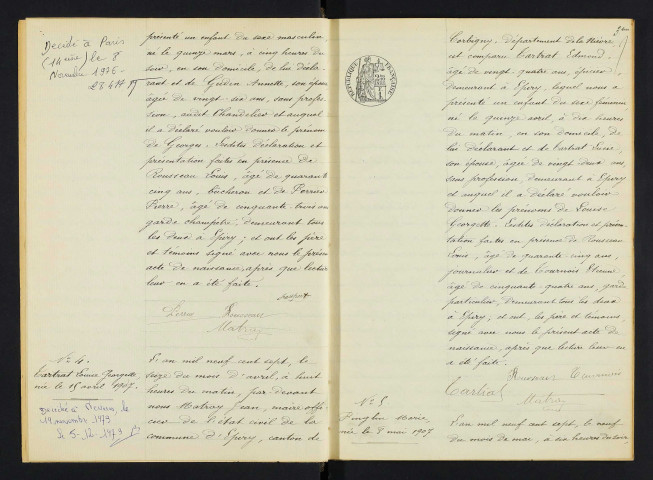 Décédé à Paris
(14 ème) le 8
Novembre 1976
présenté un enfant du sexe masculin
né le quinze mars, à cinq heures du
soir, en son domicile, de lui décla-
rant et de Guden Annette, son épouse
âgée de vingt six ans, sans profes-
sion, audit Chandelier et auquel
il a déclaré vouloir donner le prénom
de Georges. Lesdites déclaration et
présentation faites en présence de
Rousseau Louis, âgé de quarante
cinq ans, bûcheron et de Perrier
Pierre, âgé de cinquante trois ans
garde champêtre, demeurant tous
les deux à Epiry; et ont les père
et témoins signé avec nous le présent
acte de naissance, après que lecture
leur en a été faite.
Rousseau
Matray
N° 4.
Cartrat Louise Georgette
née le 15 avril 1907.
Décédée à Decize, le
19 novembre 1979
le 5-12-1979
L'an mil neuf cent sept, le
seize du mois d'avril, à huit
heures du matin, par-devant
nous Matray Jean, maire offi-
cier de l'état civil de la
commune d'Epiry, canton de
REPUBLIQUE FRANÇAISE
Corbigny, département de la Nièvre
est comparu Cartrat Edmond,
âgé de vingt-quatre ans,
demeurant à Epiry, lequel nous a
présenté un enfant du sexe féminin
né le quinze avril, à dix heures
du matin, en son domicile, de
lui déclarant et de Cartrat
son épouse, âgée de vingt deux ans,
sans profession, demeurant à Epiry
et auquel il a déclaré vouloir
donner les prénoms de Louise
Georgette. Lesdites déclaration et présen-
tation faites en présence de Rousseau
Louis, âgé de quarante cinq ans,
journalier et de Tournois Etienne
âgé de cinquante-quatre ans, garde
particulier, demeurant tous les deux
à Epiry; et ont, les père et témoins,
signé avec nous le présent acte de
naissance, après que lecture leur en
a été faite.
Rousseau Tournois
Cartrat
Matray
N° 5
Marie
née le 8 mai 1907
L'an mil neuf cent sept, le neuf
du mois de mai, à six heures du soir